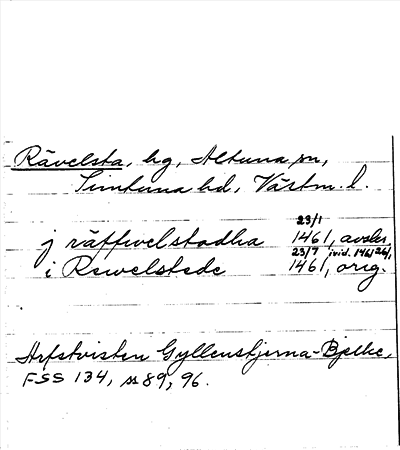 Rävelsta, hg, Altuna sn,
Simtuna hd, Västm. l.
23/1
j räffwelstadha 1461, avskr.
23/7 ivid. 1461 26/1,
i Rewelstede 1461, orig.
Arfstvisten Gyllenstjerna-Bjelke,
FSS 134, ss 89, 96.